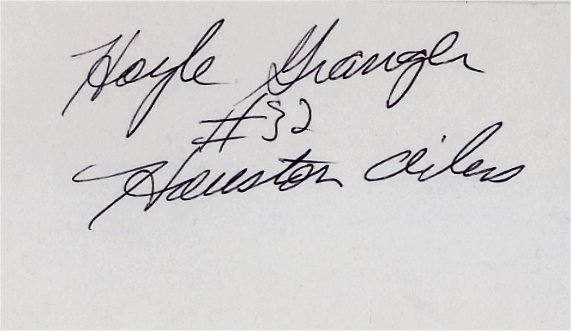 Hoyle Granger
#32
Houston Oilers